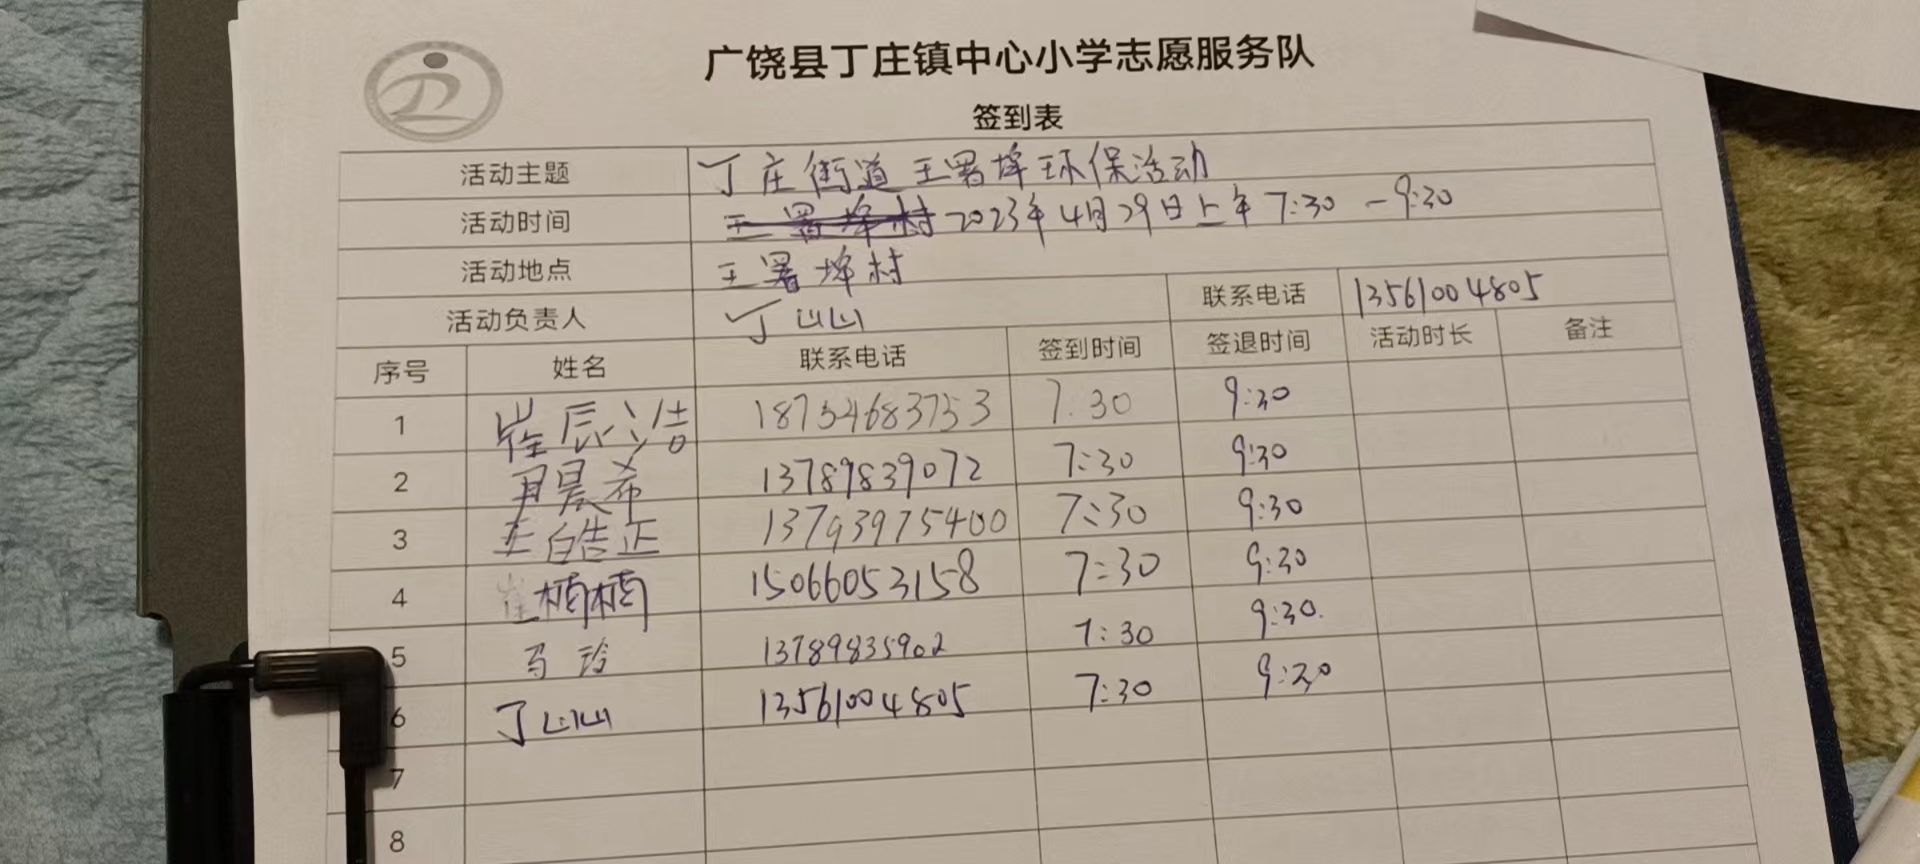 广饶县丁庄镇中心小学志愿服务队
签到表
活动主题 丁庄街道王署埄环保活动
活动时间 王署埄村 2023年4月29日上午7:30-9:30
活动地点 王署埄村
活动负责人 丁山山 联系电话 13561004805
序号 姓名 联系电话 签到时间 签退时间 活动时长 备注
1 崔辰浩 18754683753 7:30 9:30
2 尹晨希 13789839072 7:30 9:30
3 王皓正 13793975400 7:30 9:30
4 崔楠楠 15066053158 7:30 9:30
5 马玲 13789835902 7:30 9:30.
6 丁山山 13561004805 7:30 9:30
7
8